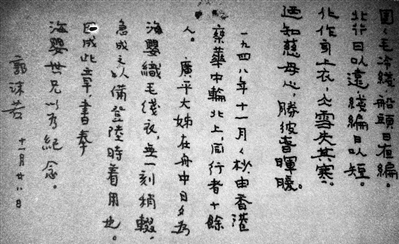 團〻毛冷綫,船頭日夜編。
北行日以遠,綫編日以短。
化作身上衣,大雪失其寒。
乃知慈母心,勝彼春暉暖。
一九四八年十一月之杪由香港
乘華中輪北上,同行者十餘
人。 廣平大姊在舟中日夕為
海嬰織毛綫衣,無一刻稍輟,
急成之以備登陸時着用也。
因成此章書奉
海嬰世兄以為紀念。
郭沫若 十一月廿八日